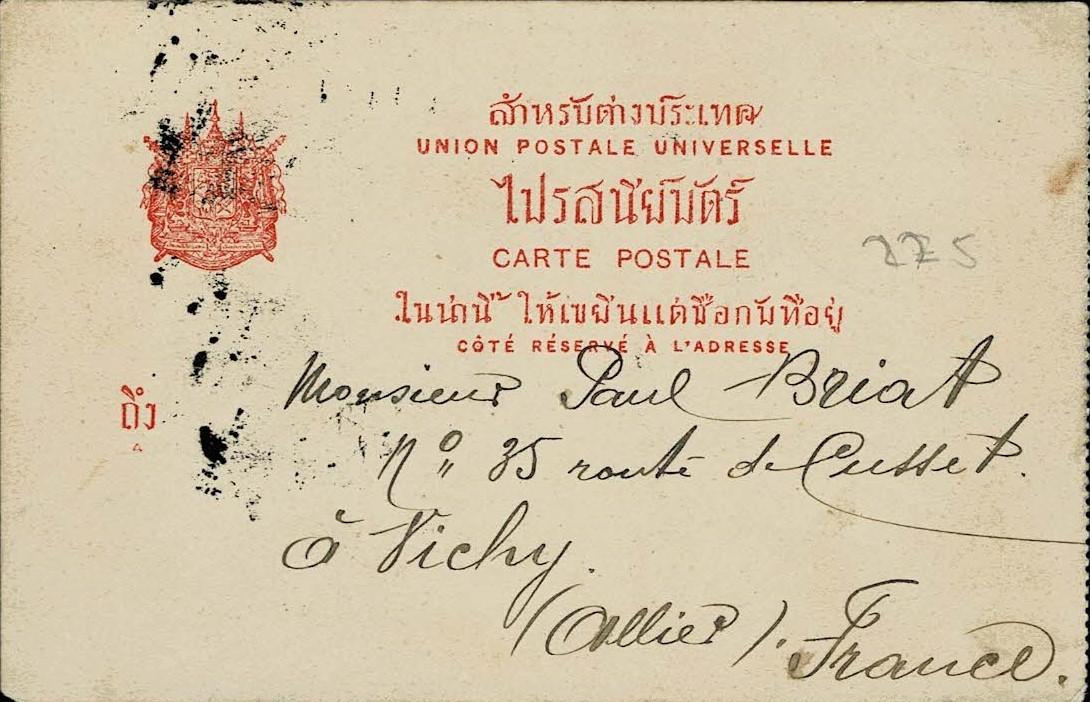 สำหรับต่างประเทศ
UNION POSTALE UNIVERSELLE
ไปรสนีย์บัตร์
CARTE POSTALE
275
ในน่านี้ ให้เขยีนแต่ชื่อกับที่อยู่
CÔTÉ RÉSERVÉ À L'ADRESSE
ถึง
A
Monsieur Paul Briat
No 35 route de Cusset.
à Vichy.
(Allier). France.